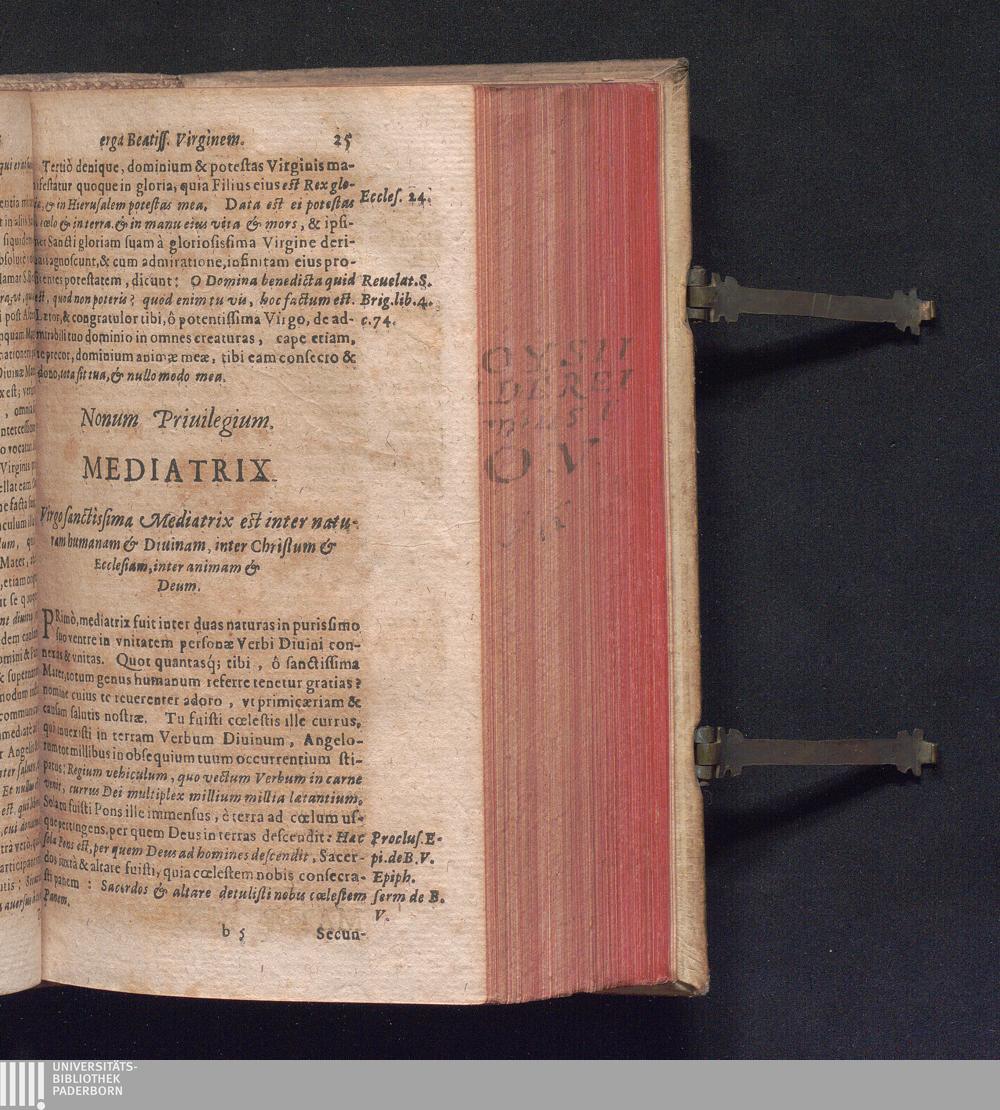 erga Beatiss. Virginem. 25
Tertiò denique, dominium & potestas Virginis ma-
nifestatur quoque in gloria, quia Filius eius est Rex glo-
riæ, & in Hierusalem potestas mea. Data est ei potestas
Eccles. 24.
in cœlo & in terra. & in manu eius vita & mors, & ipsi-
met Sancti gloriam suam à gloriosissima Virgine deri-
agnoscunt, & cum admiratione, infinitam eius pro-
fitentes potestatem, dicunt: O Domina benedicta quid
Reuelat. S.
est, quod non poteris? quod enim tu vis, hoc factum est.
Brig. lib. 4.
Lætor, & congratulor tibi, ô potentissima Virgo, de ad-
c. 74.
mirabili tuo dominio in omnes creaturas, cape etiam,
te precor, dominium animæ meæ, tibi eam consecro &
dono, tota sit tua, & nullo modo mea.
Nonum Priuilegium.
MEDIATRIX.
Virgo sanctissima Mediatrix est inter natu-
ram humanam & Diuinam, inter Christum &
Ecclesiam, inter animam &
Deum.
PRimò, mediatrix fuit inter duas naturas in purissimo
suo ventre in vnitatem personæ Verbi Diuini con-
nexas & vnitas. Quot quantasq; tibi, ô sanctissima
Mater, totum genus humanum referre tenetur gratias?
nomine cuius te reuerenter adoro, vt primiceriam &
causam salutis nostræ. Tu fuisti cœlestis ille currus,
qui inuexisti in terram Verbum Diuinum, Angelo-
rum tot millibus in obsequium tuum occurrentium sti-
patus: Regium vehiculum, quo vectum Verbum in carne
venit, currus Dei multiplex millium millia lætantium,
Sola tu fuisti Pons ille immensus, è terra ad cœlum us-
que pertingens, per quem Deus in terras descendit: Hæc
Proclus. E-
sola Pons est, per quem Deus ad homines descendit, Sacer-
pi. de B. V.
dos iuxtà & altare fuisti, quia cœlestem nobis consecra-
Epiph.
sti panem: Sacerdos & altare detulisti nobis cœlestem
serm de B.
Panem.
V.
b 5 Secun-
UNIVERSITÄTS-
BIBLIOTHEK
PADERBORN